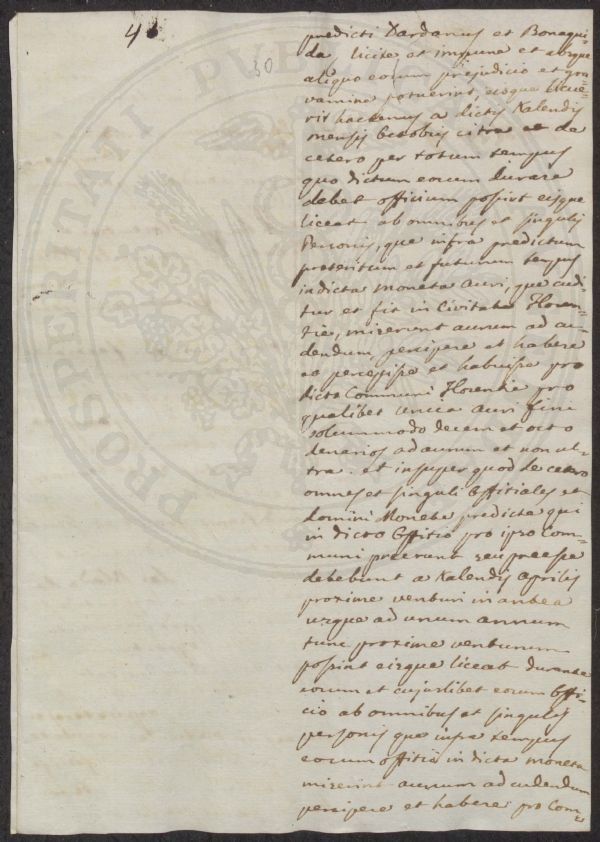 46
30
predicti Dardanus et Bonagui-
da licite et impune et absque
aliquo eorum prejudicio et gra-
vamine potuerint, eisque licue-
rit hactenus a dictis Kalendis
mensis Octobris citra et de
cetero per totum tempus
quo dictum eorum durare
debet officium possint eisque
liceat ab omnibus et singulis
Personis, que infra predictum
preteritum et futurum tempus
in dicta moneta auri, que cudi-
tur et fit in Civitate Floren-
tie, miserunt aurum ad cu-
dendum, percipere et habere
et percepisse et habuisse pro
dicto Communi Florentie pro
qualibet uncia auri fini
solummodo decem et octo
denarios ad aurum et non ul-
tra. et insuper quod de cetero
omnes et singuli Offitiales et
domini Monete predicte qui
in dicto Offitio pro ipso Com-
muni preerunt seu preesse
debebunt a Kalendis Aprilis
proxime venturi in antea
usque ad unum annum
tunc proxime venturum
possint eisque liceat durante
eorum et cujuslibet eorum Offi-
cio ab omnibus et singulis
personis que infra tempus
eorum offitii in dicta moneta
miserint aurum ad cudendum
percipere et habere pro Com-
PROSPERITATI PUBLI